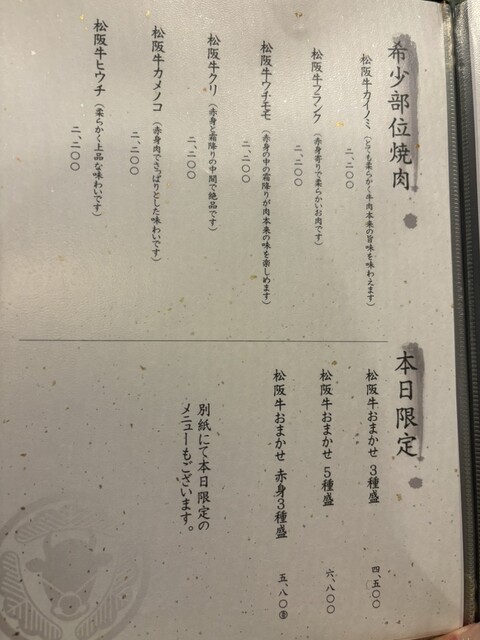 希少部位焼肉
松阪牛カイノミ（とても柔らかく牛肉本来の旨味を味わえます）
二、二〇〇
松阪牛フランク（赤身寄りで柔らかいお肉です）
二、二〇〇
松阪牛ウチモモ（赤身の中の霜降りが肉本来の味を楽しめます）
二、二〇〇
松阪牛クリ（赤身と霜降りの中間で絶品です）
二、二〇〇
松阪牛カメノコ（赤身肉でさっぱりとした味わいです）
二、二〇〇
松阪牛ヒウチ（柔らかく上品な味わいです）
二、二〇〇
本日限定
松阪牛おまかせ 3種盛
四、五〇〇
松阪牛おまかせ 5種盛
六、八〇〇
松阪牛おまかせ 赤身3種盛
五、八〇〇
別紙にて本日限定の
メニューもございます。